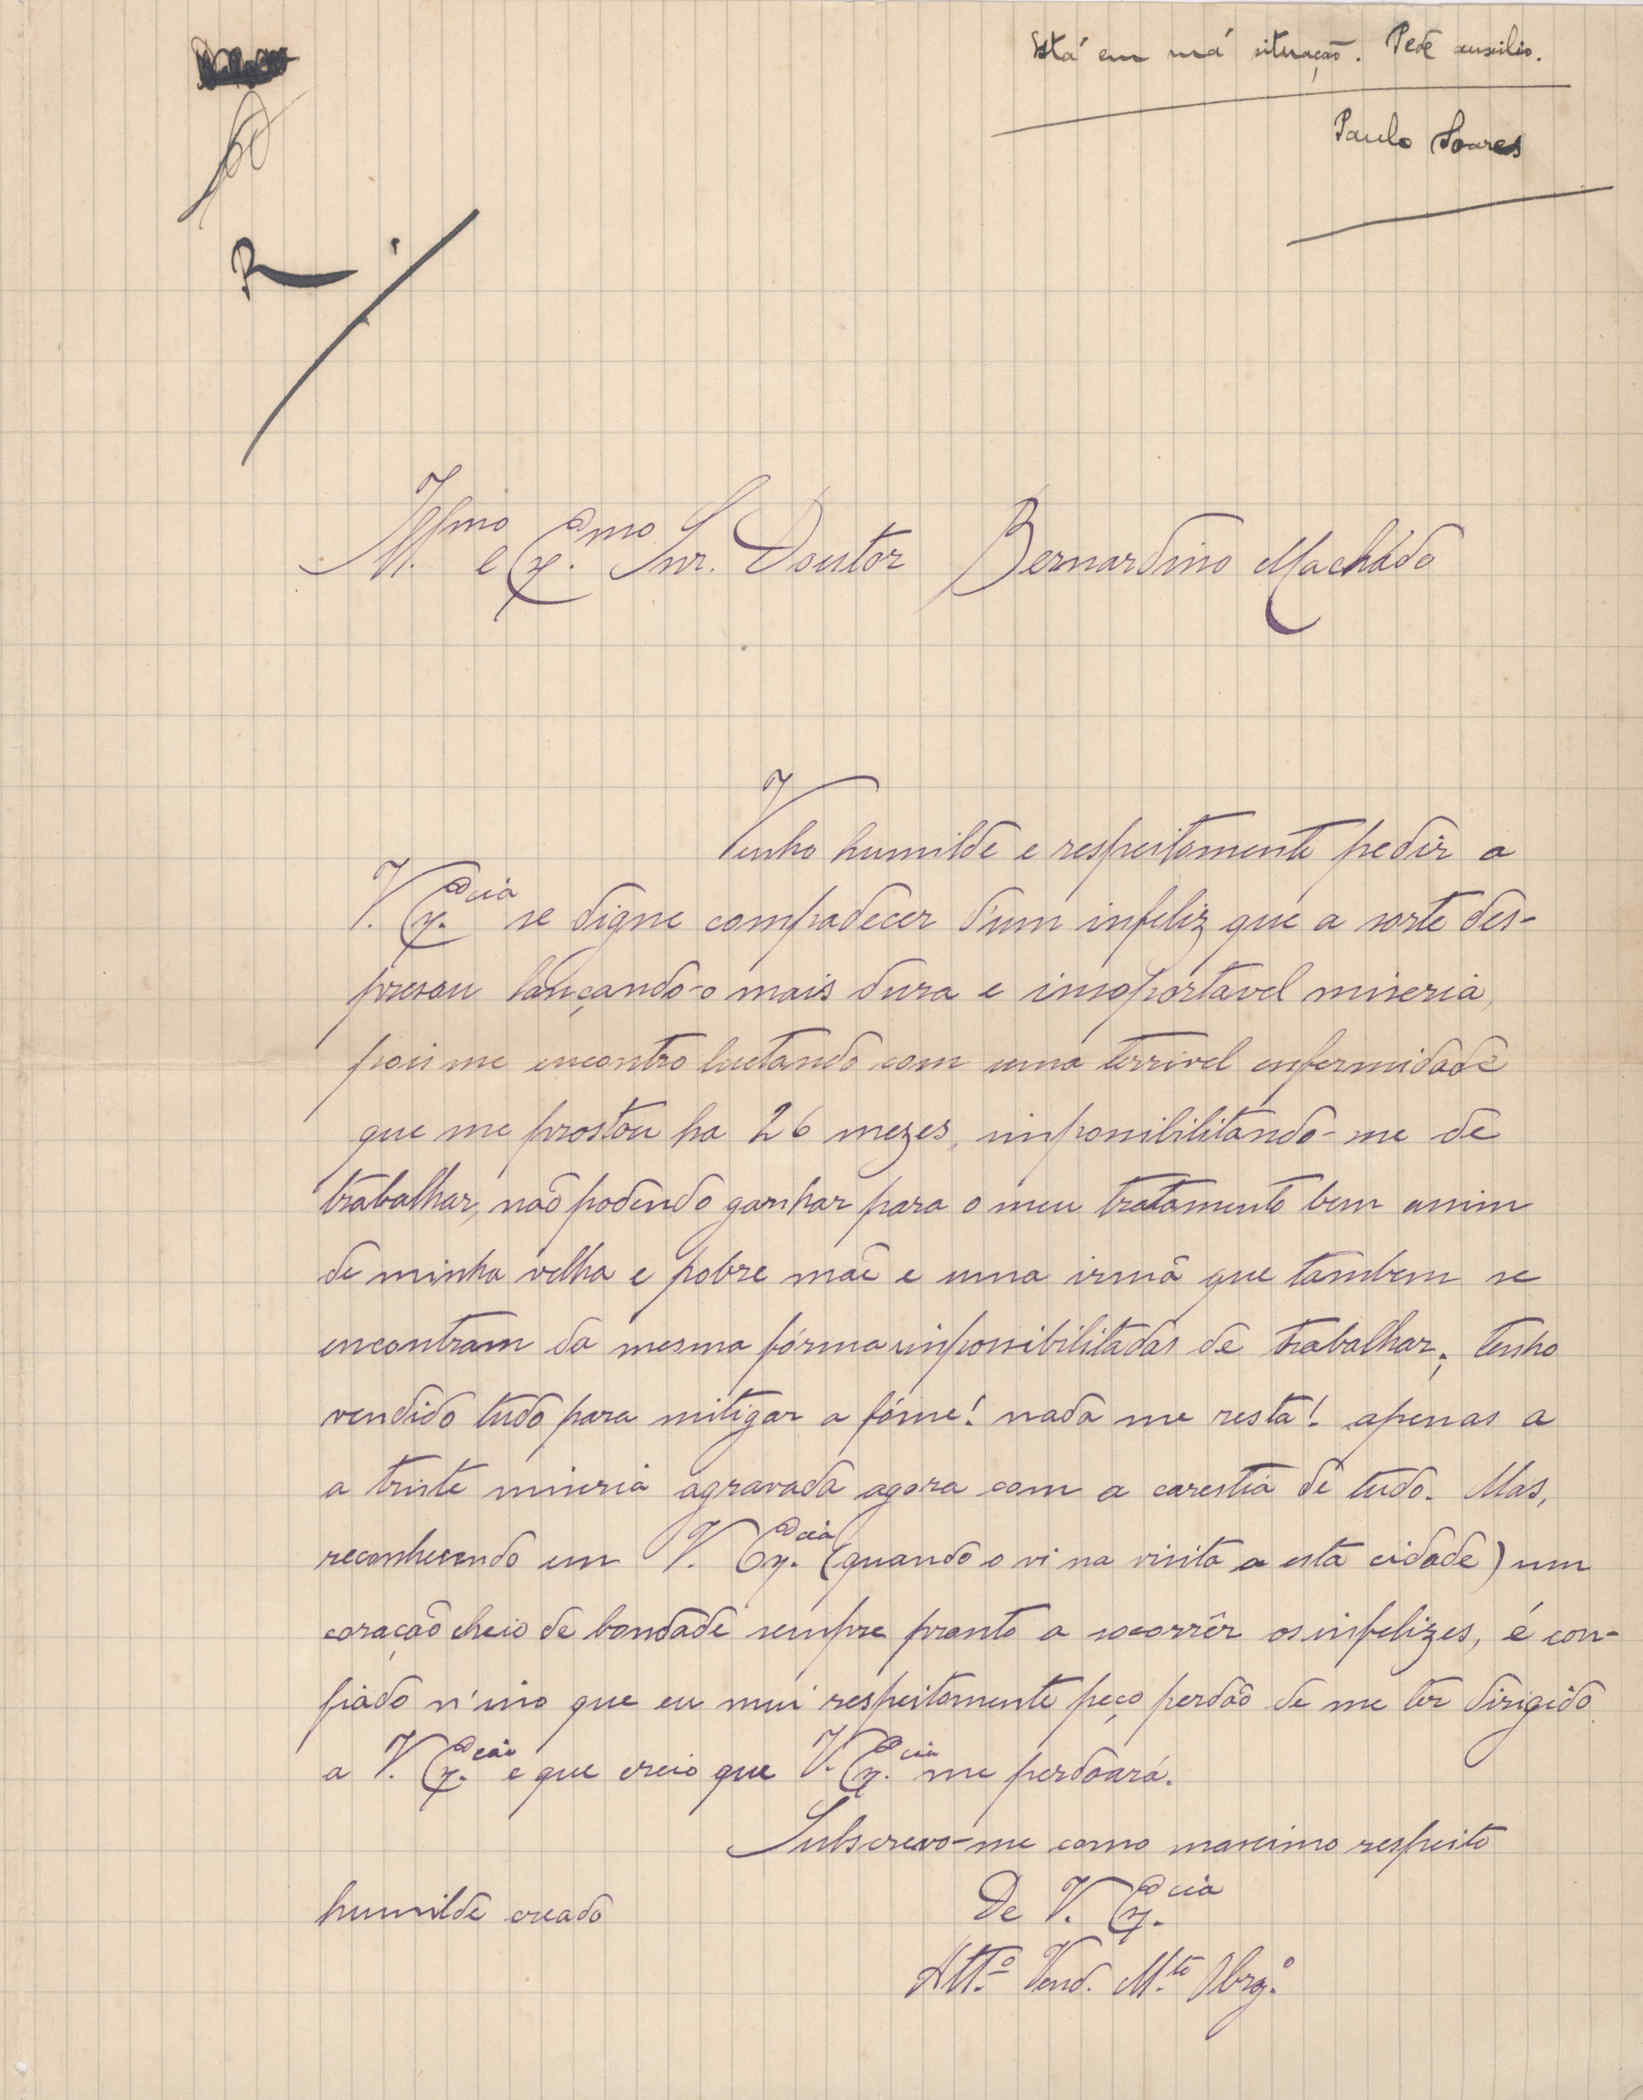 Está em má situação. Pede auxilio.
Paulo Soares
R
Illmo e Ex.mo Snr. Doutor Bernardino Machádo
Venho humilde e respeitamente pedir a
V. Ex.cia se digne compadecer d'um infeliz que a sorte des-
presou lançando-o mais dura e insoportavel miseria,
pois me encontro luctando com uma terrivel enfermidade
que me prostou ha 26 mezes, impossibilitando-me de
trabalhar, não podendo ganhar para o meu tratamento bem assim
de minha velha e pobre mãe e uma irmã que tambem se
encontram da mesma fórma impossibilitadas de trabalhar; tenho
vendido tudo para mitigar a fóme! nada me resta! apenas a
a triste miseria agravada agora com a carestia de tudo. Mas,
reconhecendo em V. Ex.cia (quando o vi na visita a esta cidade) um
coração cheio de bondade sempre pronto a socorrêr os infelizes, é con-
fiado n'isso que eu mui respeitamente peço perdão de me ter dirigido
a V. Ex.cia e que creio que V. Ex.cia me perdoará.
Subscrevo-me como maximo respeito
De V. Ex.cia
humilde creado
Att.º Vend. M.to Obrg.º